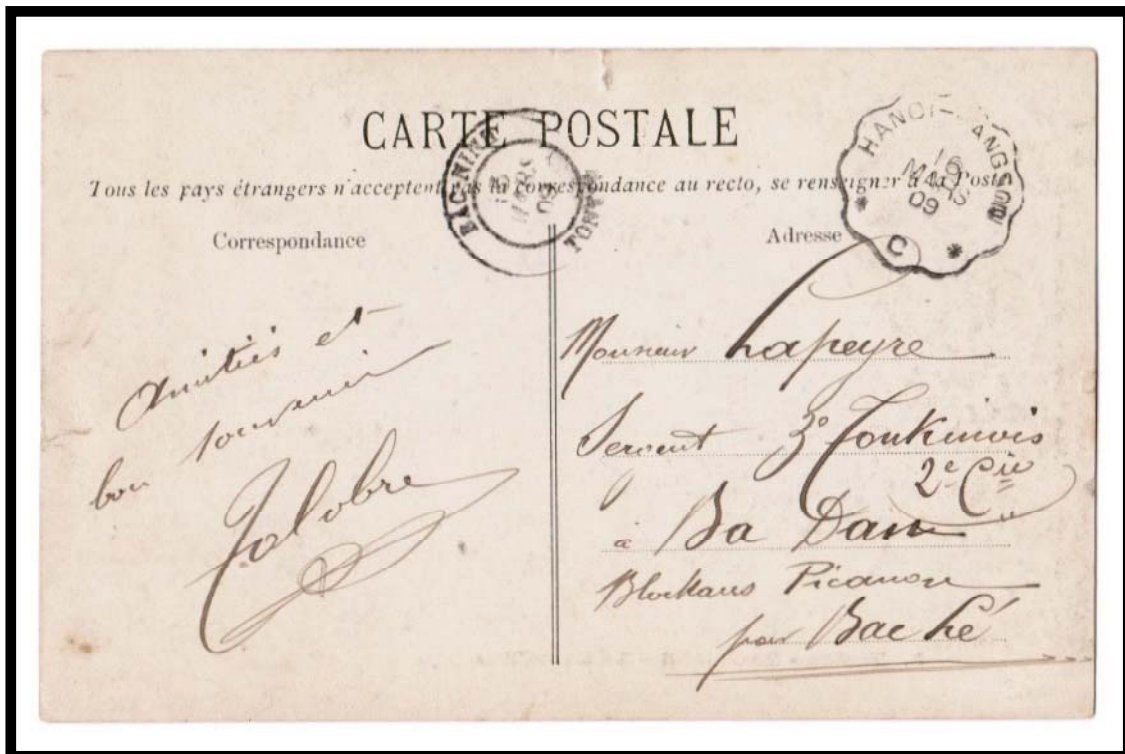 CARTE POSTALE
Tous les pays étrangers n'acceptent pas la correspondance au recto, se renseigner à la Poste
Correspondance
Adresse
BAC-NINH
MARS
09
TONKIN
HANOI-LANGSON
16
MARS
09
C
Amitiés et
bon souvenir
Monsieur Lapeyre
Sergent 3e Tonkinois
2e Cie
à Ba Dan
Blockaus
par Bac Lé